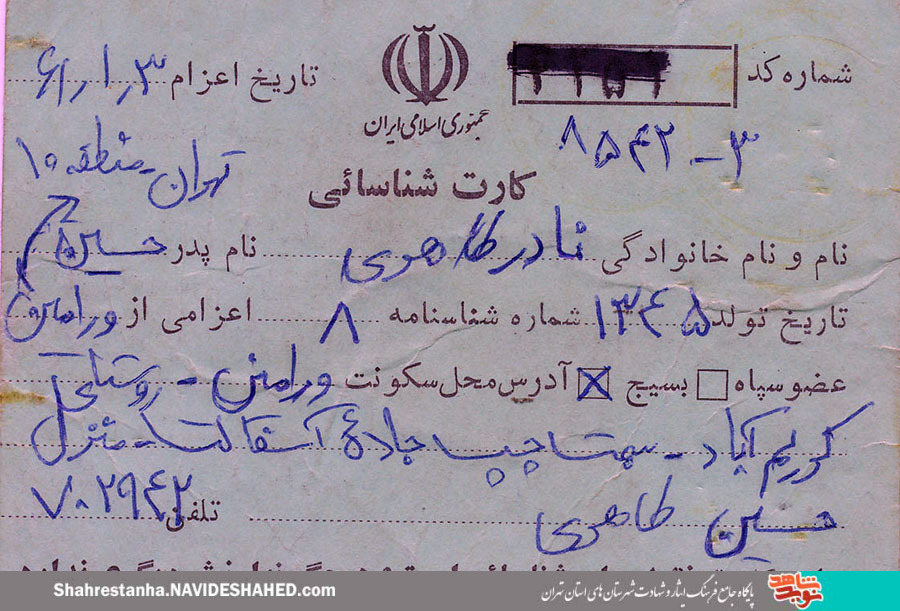 شماره کد
تاریخ اعزام ۶۱٫۱٫۳
جمهوری اسلامی ایران
۸۵۴۲-۳
تهران-منطقه ۱۰
کارت شناسائی
نام و نام خانوادگی نادر طاهری نام پدر حسین
تاریخ تولد ۱۳۴۵ شماره شناسنامه ۸ اعزامی از ورامین
عضو سپاه بسیج آدرس محل سکونت ورامین - روستای
کریم آباد - سمت چپ جادهٔ آسفالت - منزل
حسین طاهری تلفن ۷۰۲۹۴۲
Shahrestanha.NAVIDESHAHED.com
پایگاه جامع فرهنگ ایثار و شهادت شهرستان های استان تهران
نوید شاهد